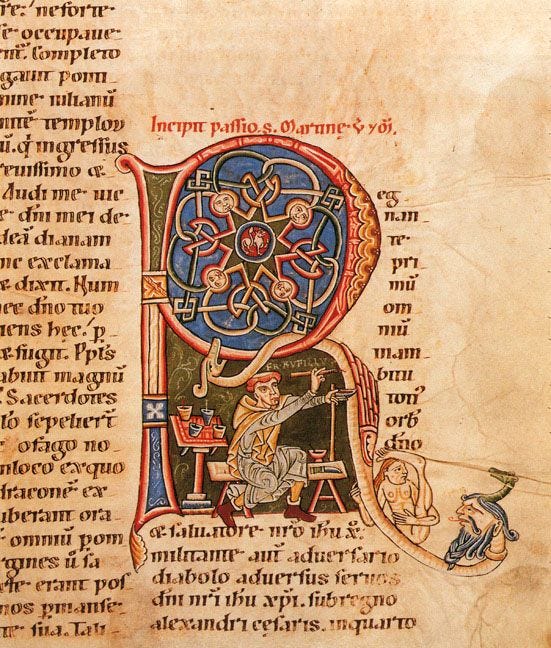 re: ne forte
se occupaue-
Completo
gauit ponti-
mne iulianū
templorū
ingressus
Audi me
e dn̄i mei de-
deā dianam
nc exclama
e dixit. Num
dn̄o tuo
iens hec. p
fugit. Pp̄s
abiit magnū
Sacerdotes
lo sepelierūt
ofago no-
inloco exquo
draconē ex
uberant ora
omniū pom
gines ū sa
erant pos
nos pmanse-
sua. Tali
Incipit passio. s. Martinę. v̄
R
eg
nan-
te
pri-
mū
om-
niū
mani
bitu
toni
orb
dn̄o
FR RVFILL
saluatore nr̄o ihu xp̄.
militante aut̄ aduersario
diabolo aduersus seruos
dn̄i nr̄i ihu xp̄i. subregno
alexandri cęsaris. inquarto